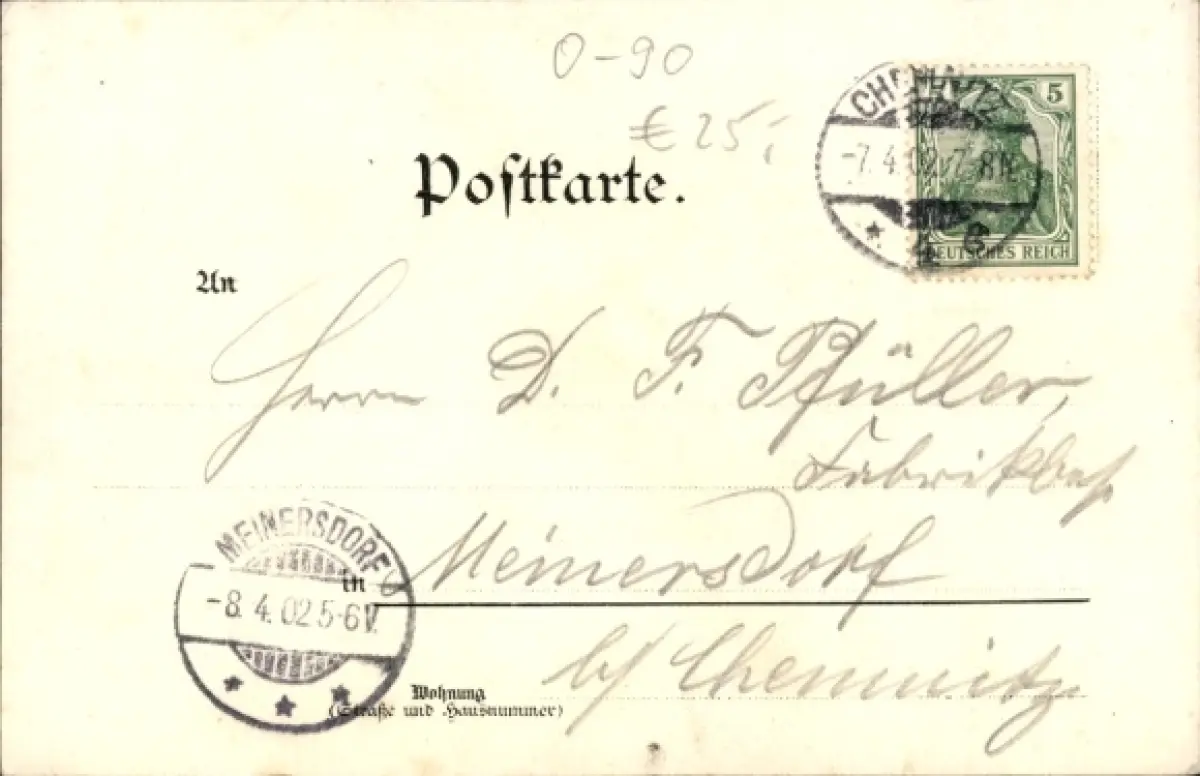 0-90
€ 25,-
Postkarte.
CHEMNITZ
-7.4.02.7-8N.
* 4 e
5
DEUTSCHES REICH
An
Herrn D. F. Pfüller,
Fabrikbes.
MEINERSDORF
-8.4.02 5-6V.
* * *
in Meinersdorf
b/ Chemnitz.
Wohnung
(Straße und Hausnummer)